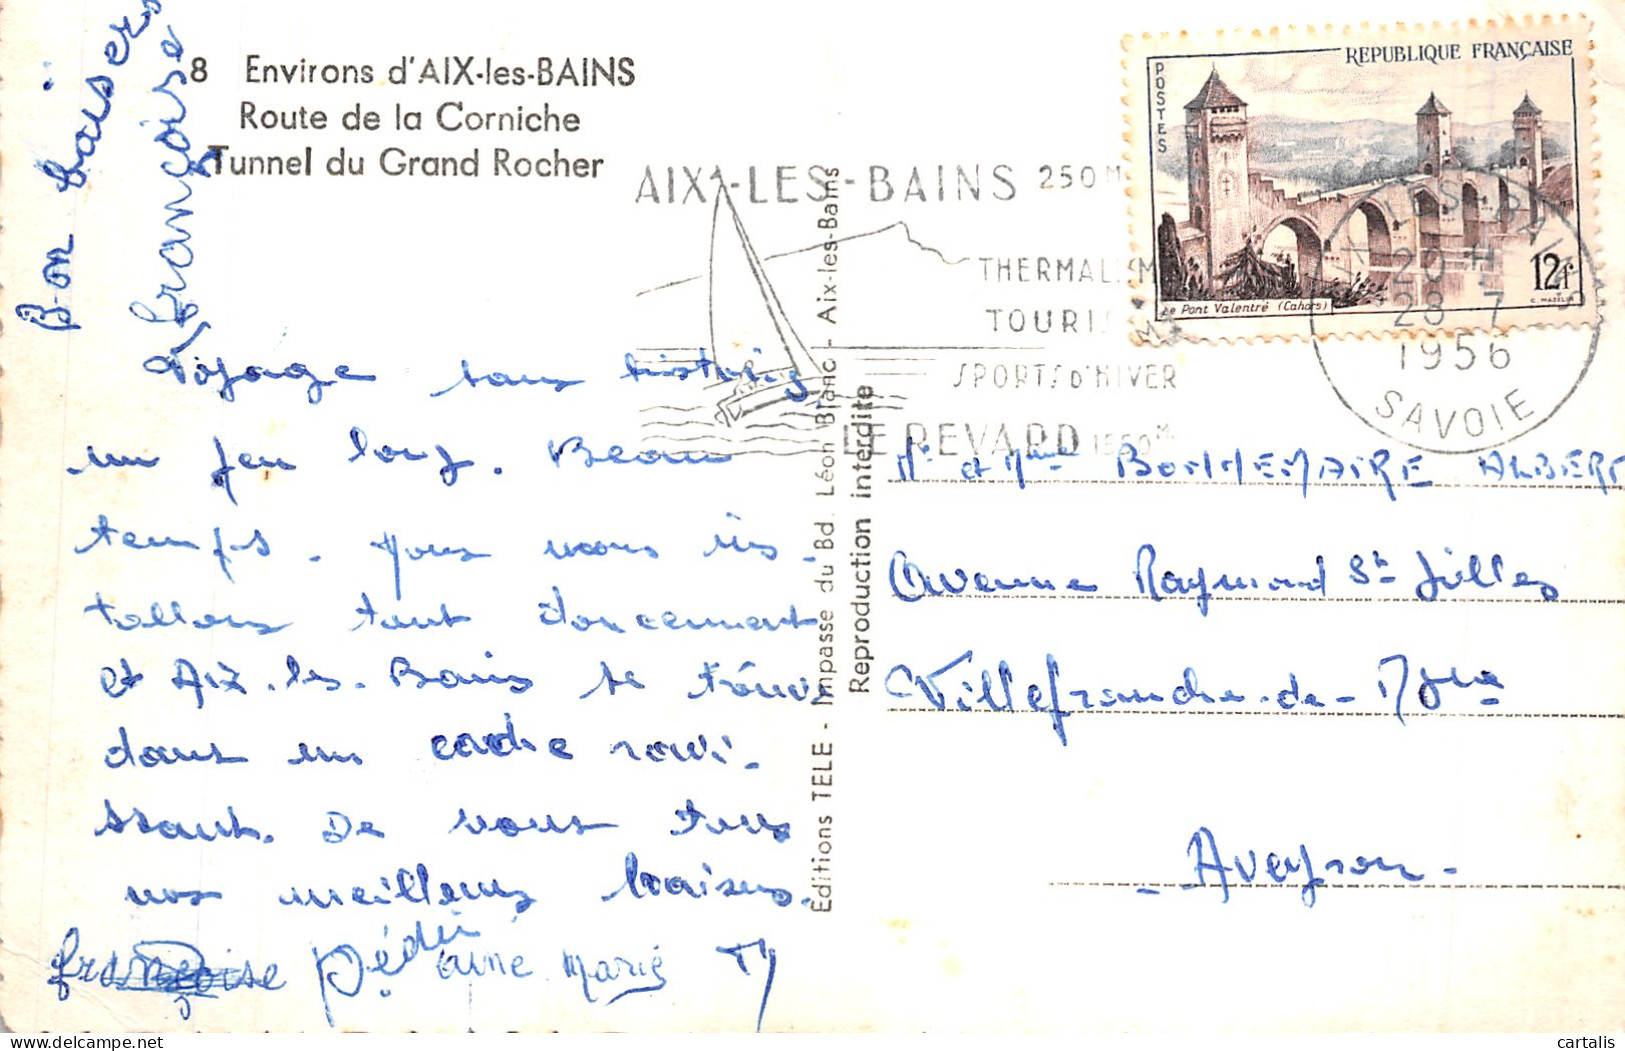 8 Environs d'AIX-les-BAINS
Route de la Corniche
Tunnel du Grand Rocher
Bon baisers
françoise
AIX-LES-BAINS 250M
THERMALISM
TOURIS
SPORTS D'HIVER
LE REVARD 1550M.
REPUBLIQUE FRANÇAISE
POSTES
12f
Le Pont Valentré (Cahors)
C. MAZELIN
AIX-LES-BAINS
20H
28-7
1956
SAVOIE
Voyage sans histoire,
un peu long. Beau
temps. Nous nous ins-
tallons tout doucement
et Aix-les-Bains se trouve
dans un cadre ravi-
ssant. De nous tous
nos meilleurs baisers.
françoise Dédée anne marie
Editions TELE - Impasse du Bd. Léon Blanc - Aix-les-Bains
Reproduction interdite
Mr et Mme BONNEMAIRE ALBERT
Avenue Raymond St Gilles
Villefranche-de-Rgue
- Aveyron -
cartalis